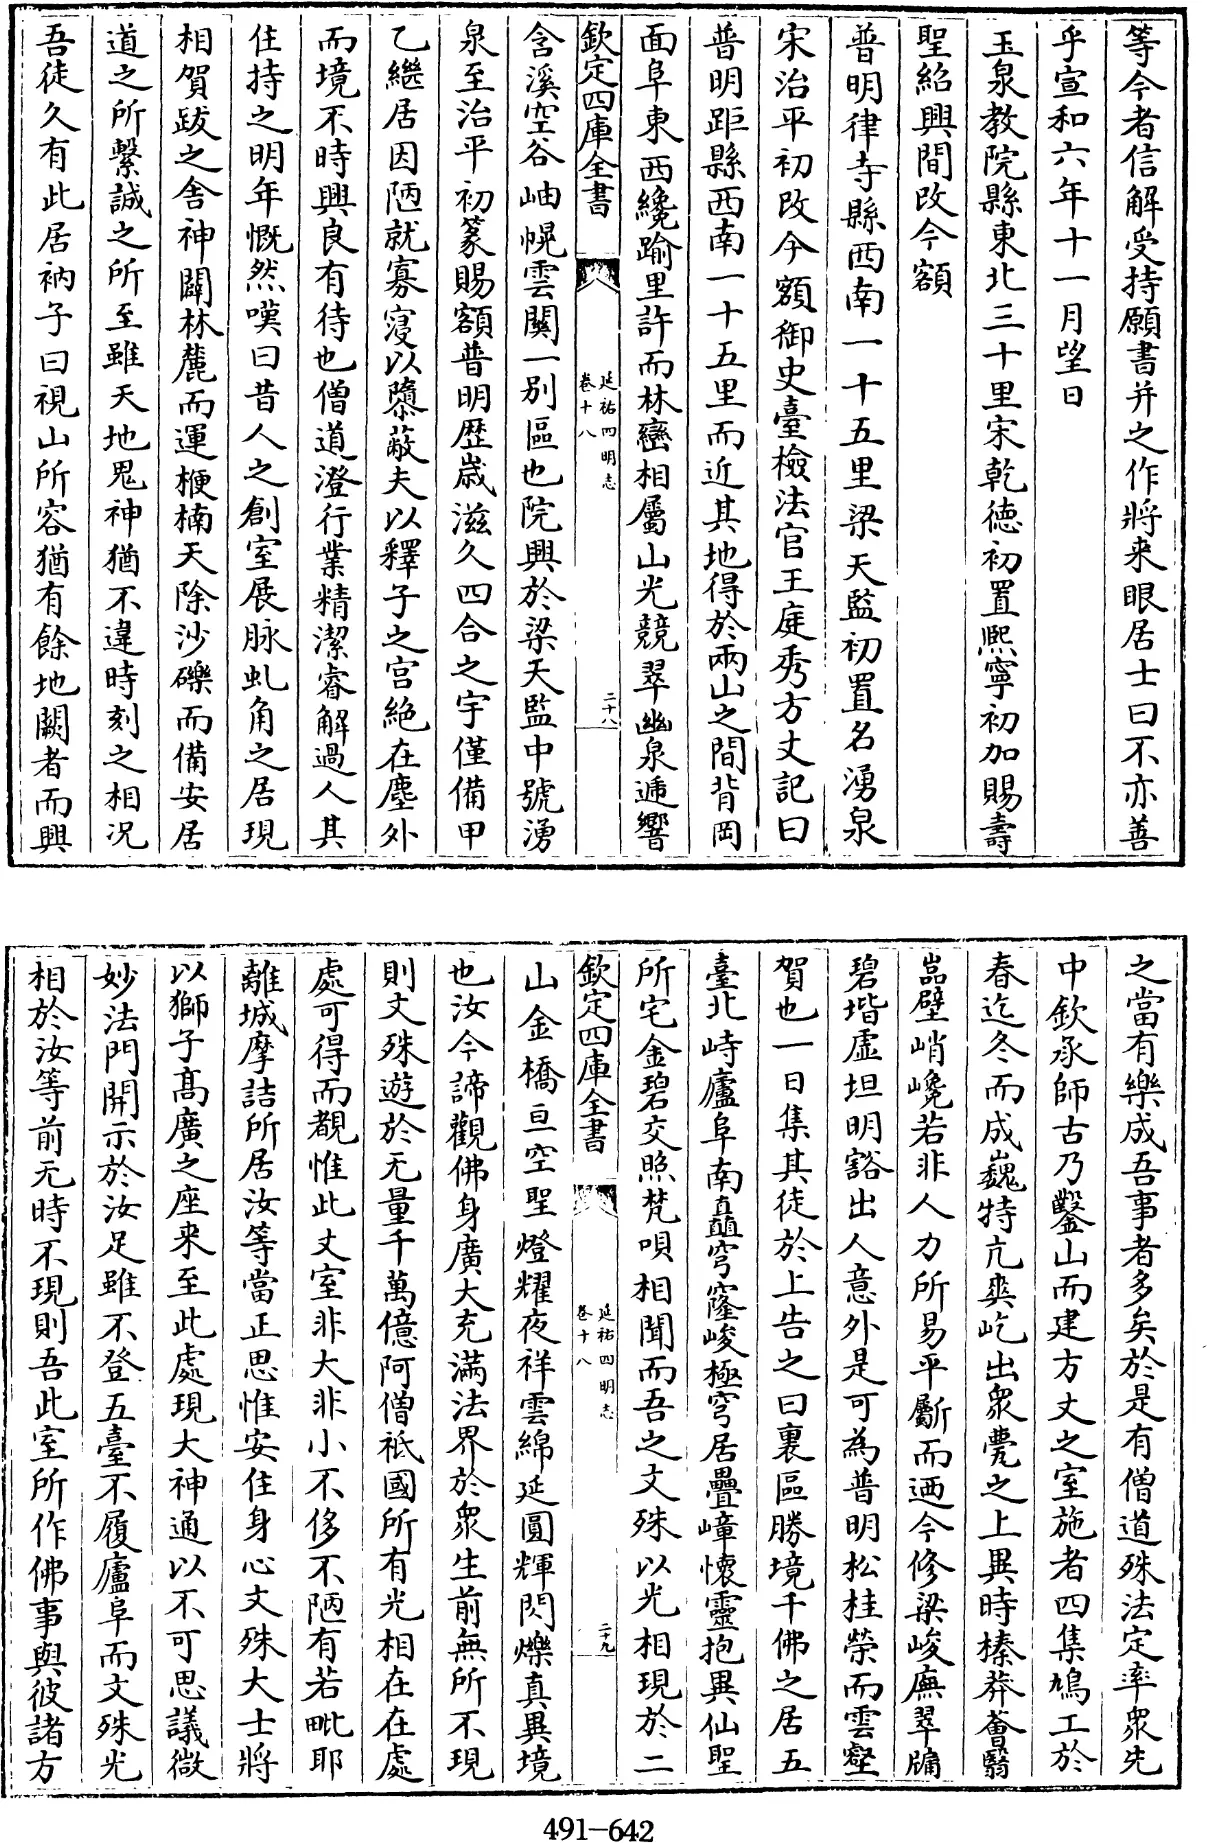 等今者信解受持願書并之作將来眼居士曰不亦善
乎宣和六年十一月望日
玉泉教院縣東北三十里宋乾徳初置熈寧初加賜壽
聖紹興間改今額
普明律寺縣西南一十五里梁天監初置名湧泉
宋治平初改今額御史臺檢法官王庭秀方丈記曰
普明距縣西南一十五里而近其地得於兩山之間背岡
面阜東西纔踰里許而林巒相屬山光競翠幽泉遞響
欽定四庫全書
延祐四明志
卷十八
二十八
含溪空谷岫幌雲關一別區也院興於梁天監中號湧
泉至治平初篆賜額普明歴歳滋久四合之宇僅備甲
乙繼居因陋就寡寖以隳蔽夫以釋子之宫絶在塵外
而境不時興良有待也僧道澄行業精潔睿解過人其
住持之明年慨然嘆曰昔人之創室展脉虬角之居現
相賀跋之舎神闢林麓而運楩楠天除沙礫而備安居
道之所繫誠之所至雖天地鬼神猶不違時刻之相况
吾徒久有此居衲子曰視山所容猶有餘地闕者而興
之當有樂成吾事者多矣於是有僧道殊法定率衆先
中欽承師古乃鑿山而建方丈之室施者四集鳩工於
春迄冬而成巍特亢爽屹出衆甍之上異時榛莽薈翳
嵓壁峭巉若非人力所易平斸而迺今修梁峻廡翠牖
碧堦虚坦明豁出人意外是可為普明松桂榮而雲壑
賀也一日集其徒於上告之曰裏區勝境千佛之居五
臺北峙廬阜南矗穹窿峻極穹居疊嶂懐靈抱異仙聖
所宅金碧交照梵唄相聞而吾之文殊以光相現於二
欽定四庫全書
延祐四明志
卷十八
二十九
山金橋亘空聖燈耀夜祥雲綿延圓輝閃爍真異境
也汝今諦觀佛身廣大充滿法界於衆生前無所不現
則文殊遊於无量千萬億阿僧祇國所有光相在在處
處可得而覩惟此丈室非大非小不侈不陋有若毗耶
離城摩詰所居汝等當正思惟安住身心文殊大士將
以獅子髙廣之座来至此處現大神通以不可思議微
妙法門開示於汝足雖不登五臺不履廬阜而文殊光
相於汝等前无時不現則吾此室所作佛事與彼諸方
491-642